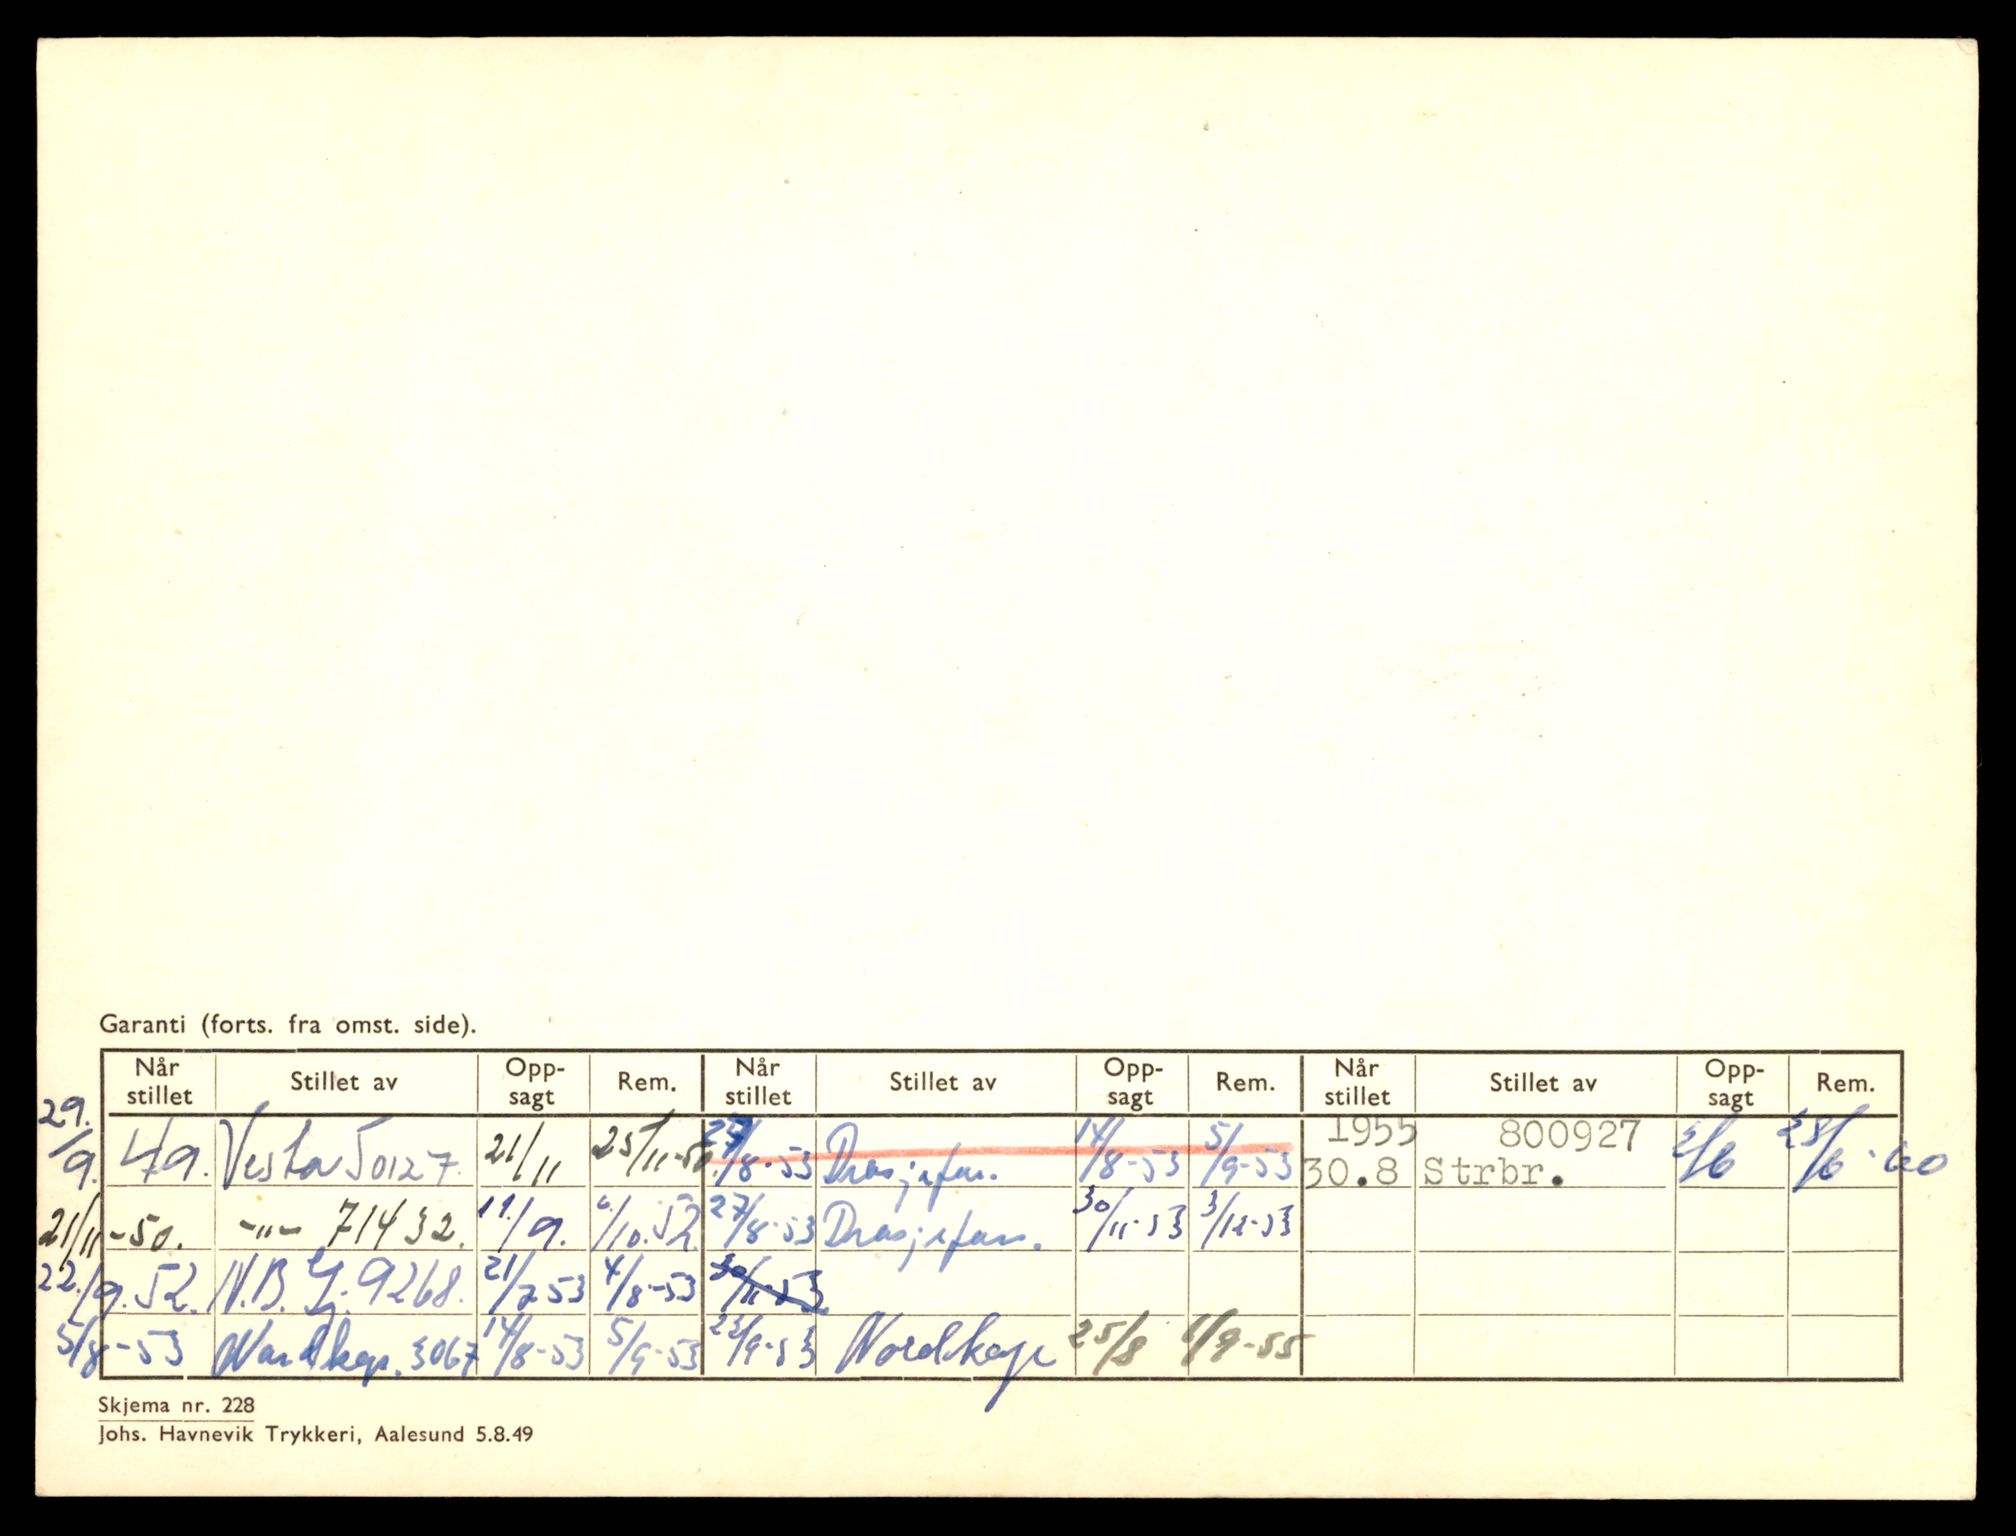 Garanti (forts. fra omst. side).
Når stillet Stillet av Opp-sagt Rem. Når stillet Stillet av Opp-sagt Rem. Når stillet Stillet av Opp-sagt Rem.
29./9. 49. Vesta 50127. 21/11 25/11-50 /8-53 14/8-53 5/9-53 1955 30.8 800927 Strbr. 2/6 28/6-60
21/11-50. -"- 71432. 19./9. 6/10.52. 27/8-53 30/11-53 3/12-53
22./9.52. N.B.G. 9268. 21/7 53 4/8-53 30/11-53
5/8-53 Nordkap. 3067 14/8-53 5/9-53 23/9-53 Nordkap 25/8 1/9-55
Skjema nr. 228
Johs. Havnevik Trykkeri, Aalesund 5.8.49